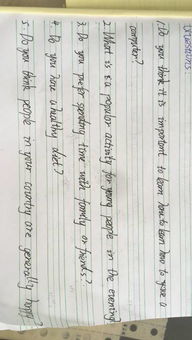 Questions
1. Do you think it is important to learn how to learn how to use a
computer?
2. What is a popular activity for young people in the evening
3. Do you prefer spending time with family or friends?
4. Do you have a healthy diet?
5. Do you think people in your country are generally happy?